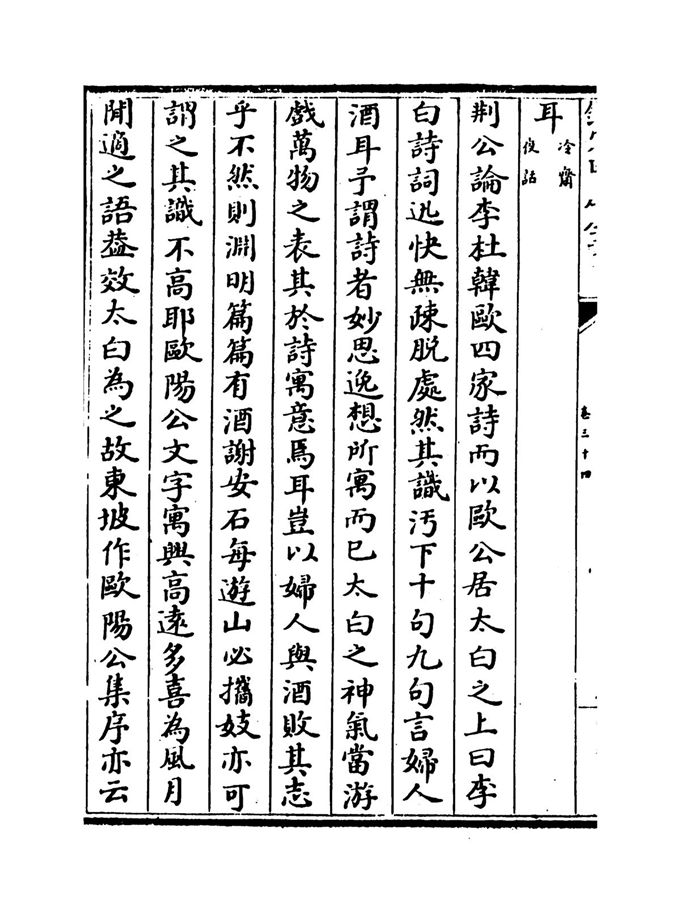 卷三十四
耳冷齋夜話
荆公論李杜韓歐四家詩而以歐公居太白之上曰李
白詩詞迅快無疎脱處然其識汚下十句九句言婦人
酒耳予謂詩者妙思逸想所寓而已太白之神氣當游
戲萬物之表其於詩寓意焉耳豈以婦人與酒敗其志
乎不然則淵明篇篇有酒謝安石每遊山必攜妓亦可
謂之其識不高耶歐陽公文字寓興高遠多喜為風月
閒適之語葢效太白為之故東坡作歐陽公集序亦云